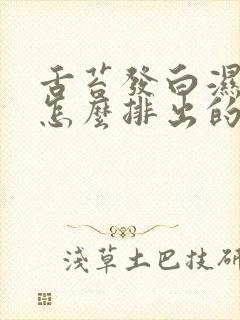 舌苔發白濕
怎麼排出的
淺草土巴技研